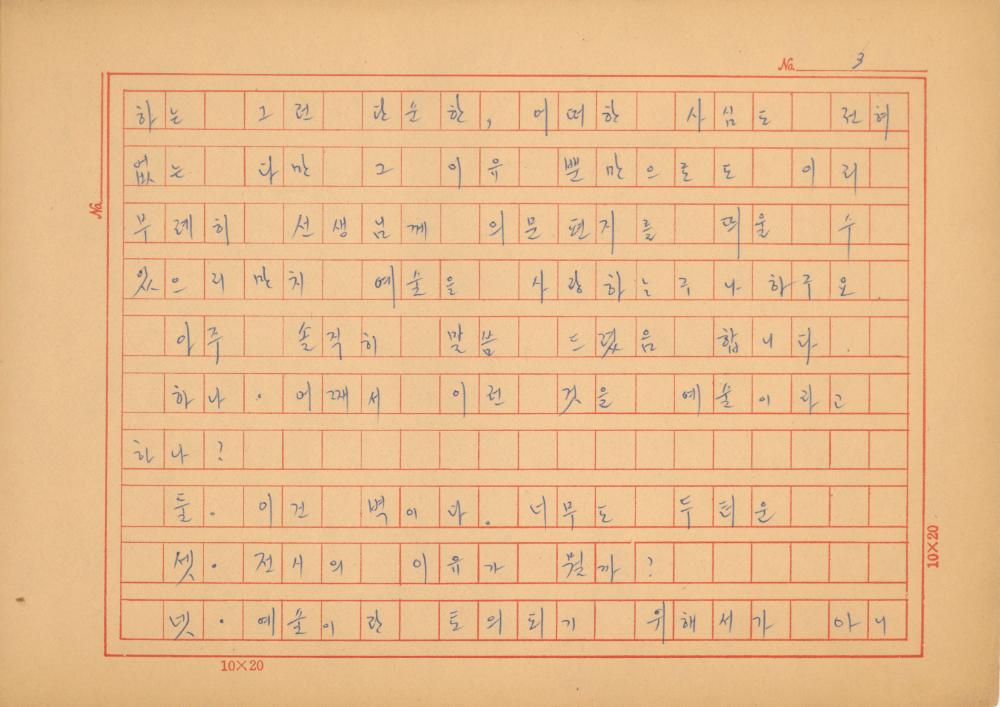 No. 3
No.
하는 그런 단순한, 어떠한 사심도 전혀
없는 다만 그 이유 뿐만으로도 이리
무례히 선생님께 의문편지를 띄울 수
있으리만치 예술을 사랑하는구나 하구요.
아주 솔직히 말씀 드렸음 합니다.
하나. 어째서 이런 것을 예술이라고
하나?
둘. 이건 벽이다. 너무도 두터운
셋. 전시의 이유가 뭘까?
넷. 예술이란 토의되기 위해서가 아니
10×20
10×20